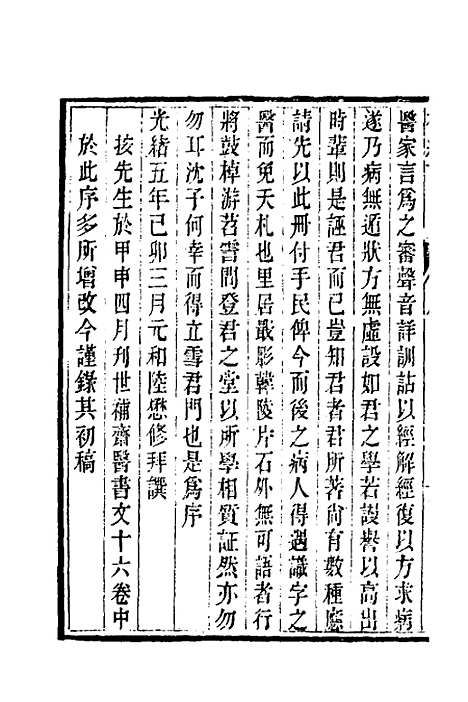 醫家言爲之審聲音詳訓詁以經解經復以方求病
遂乃病無遁狀方無虛設如君之學若謏譽以高出
時輩則是誣君而已豈知君者君所著尚有數種應
請先以此冊付手民俾今而後之病人得遇識字之
醫而免夭札也里居最影韓陵片石外無可語者行
將鼓棹游苕霅間登君之堂以所學相質証然亦勿
勿耳沈子何幸而得立雪君門也是爲序
光緒五年己卯三月元和陸懋修拜譔
按先生於甲申四月刋世補齋醫書文十六卷中
於此序多所增改今謹錄其初稿